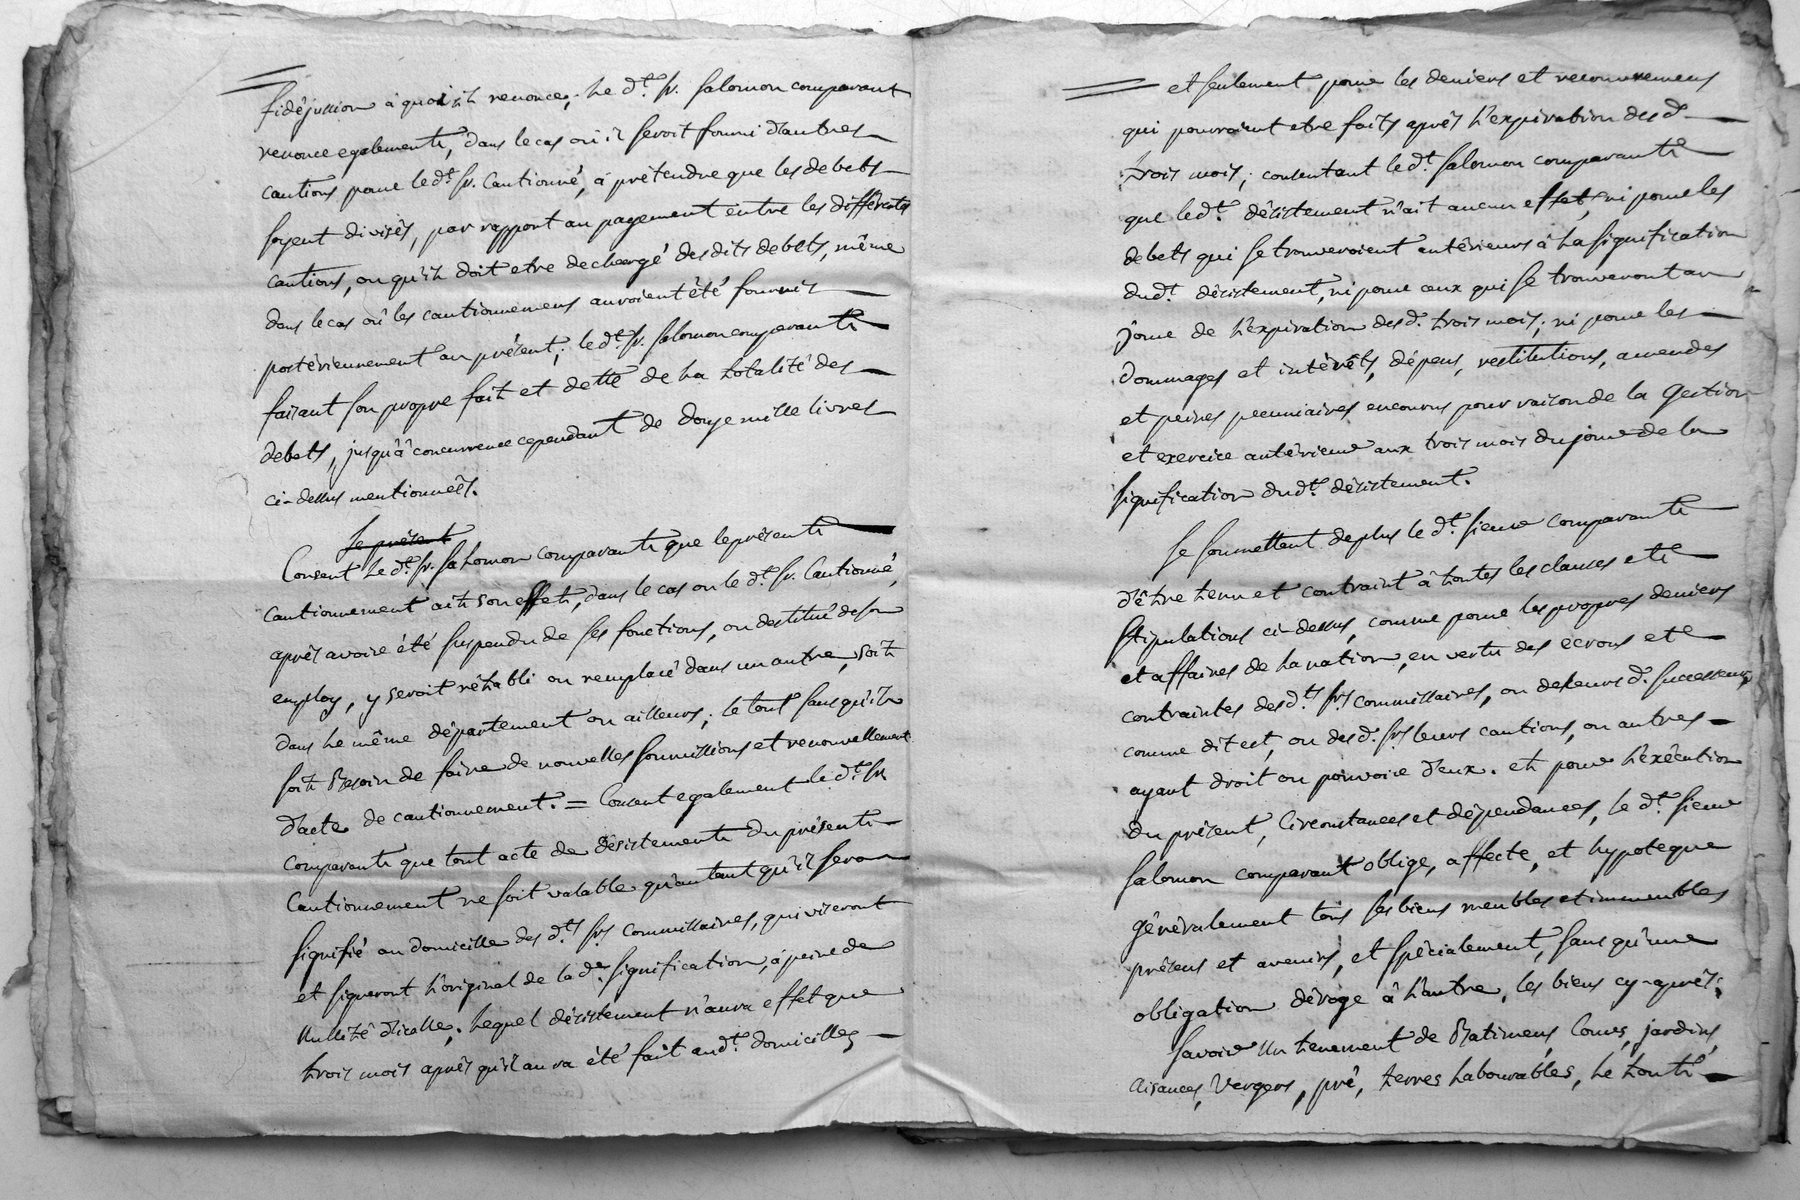 fidéjussion à quoi il renonce; le dt. sr. Salomon comparant
renonce egalement, dans le cas où il seroit fourni d'autres
cautions pour le dt. sr. Cautionné, à prétendre que les debets
soyent divisés, par rapport au payement entre les différents
cautions, ou qu'il doit etre dechargé des dits debets, même
dans le cas où les cautionnemens auroient été fournis
postérieurement au présent; le dt. sr. Salomon comparant
faisant son propre fait et dette de la totalité des
debets, jusqu'à concurrence cependant de douze mille livres
ci-dessus mentionnées.
Le présent
Consent le dt. sr. Salomon comparant que le présent
cautionnement ait son effet, dans le cas ou le dt. sr. Cautionné,
après avoir été suspendu de ses fonctions, ou destitué de son
employ, y seroit rétabli ou remplacé dans un autre, soit
dans le même département ou ailleurs; le tout sans qu'il
soit Besoin de faire de nouvelles soumissions et renouvellement
d'acte de cautionnement. = Consent egalement le dt. sr.
comparant que tout acte de désistement du présent
Cautionnement ne soit valable qu'autant qu'il sera
signifié au domicille des dts. srs. Commissaires, qui viseront
et signeront l'original de la de. signification, à peine de
Nullité d'icelle; lequel désistement n'aura effet que
trois mois après qu'il aura été fait audt. domicille,
et seulement pour les deniers et recouvremens
qui pouroient etre faits après l'expiration desd.
trois mois; consentant le dt. Salomon comparant
que le dt. désistement n'ait aucun effet, ni pour les
debets qui se trouveroient antérieurs à la signification
dudt. désistement, ni pour ceux qui se trouveront au
jour de l'expiration desd. trois mois; ni pour les
dommages et intérêts, dépens, restitutions, amendes
et peines pecuniaires encourus pour raison de la gestion
et exercice antérieur aux trois mois du jour de la
signification dudt. désistement.
Se soumettent de plus le dt. sieur comparant
d'être tenu et contraint à toutes les clauses et
stipulations ci-dessus, comme pour les propres deniers
et affaires de la nation, en vertu des ecrous et
contraintes des dts. srs. Commissaires, ou de leurs d. successeurs,
comme dit est, ou des d. srs. leurs cautions, ou autres
ayant droit ou pouvoir d'eux. et pour l'exécution
du présent, Circonstances et dépendances, le dt. sieur
Salomon comparant oblige, affecte, et hypoteque
généralement tous ses biens meubles et immeubles
présens et avenirs, et spécialement, sans qu'une
obligation déroge à l'autre, les biens cy-après;
Savoir Un tenement de Batimens, Cours, jardins,
aisances, Vergers, pré, terres labourables, le tout